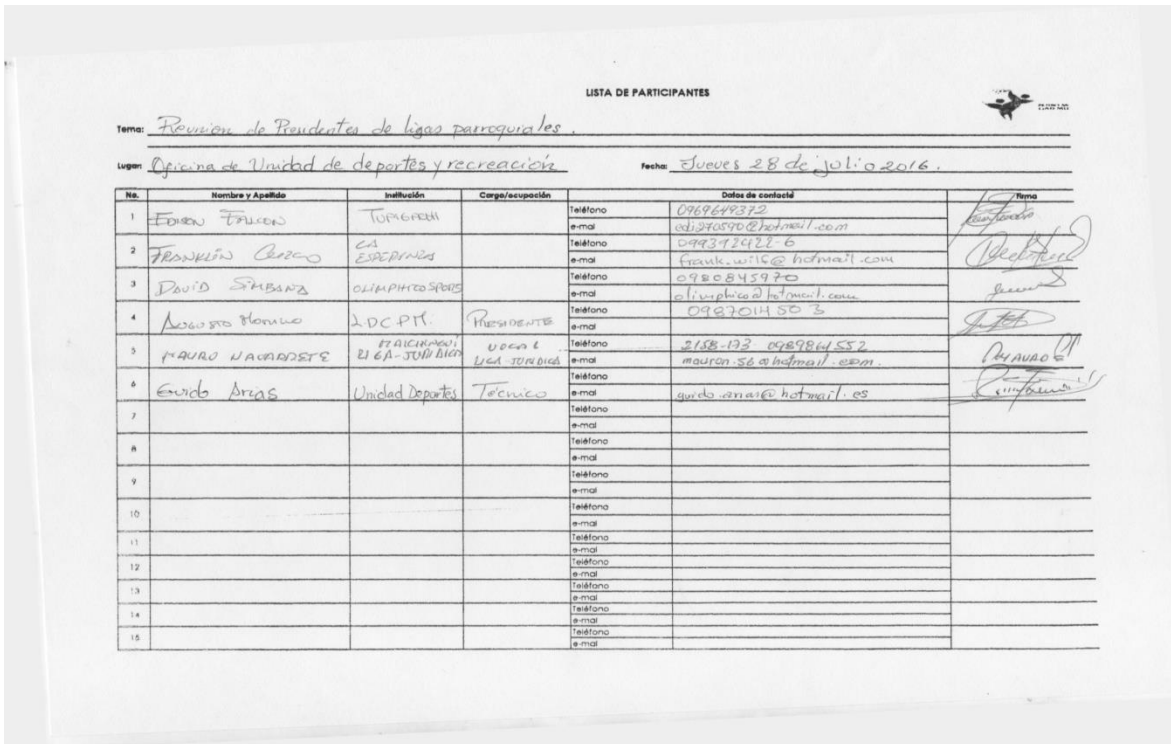 LISTA DE PARTICIPANTES
Tema: Reunion de Presidentes de ligas parroquiales.
Lugar: Oficina de Unidad de deportes y recreación Fecha: Jueves 28 de julio 2016.
No. Nombre y Apellido Institución Cargo/ocupación Datos de contacto Firma
1 Teléfono 0969649372
e-mal edi270590@hotmail.com
2 FRANKLIN LA ESPERANZA Teléfono 099392422-6
e-mal frank.wilg@hotmail.com
3 DAVID SIMBAÑA OLIMPHICO SPORS Teléfono 0980845970
e-mal olimphico@hotmail.com
4 AUGUSTO LDCPM. PRESIDENTE Teléfono 0987014503
e-mal
5 MAURO NAVARRETE MALCHINGUI LIGA-JURIDICA VOCAL LIGA-JURIDICA Teléfono 2158-173 0989864552
e-mal mauron-56@hotmail.com.
6 Guido Arias Unidad Deportes Técnico Teléfono
e-mal guido.arias@hotmail.es
7 Teléfono
e-mal
8 Teléfono
e-mal
9 Teléfono
e-mal
10 Teléfono
e-mal
11 Teléfono
e-mal
12 Teléfono
e-mal
13 Teléfono
e-mal
14 Teléfono
e-mal
15 Teléfono
e-mal